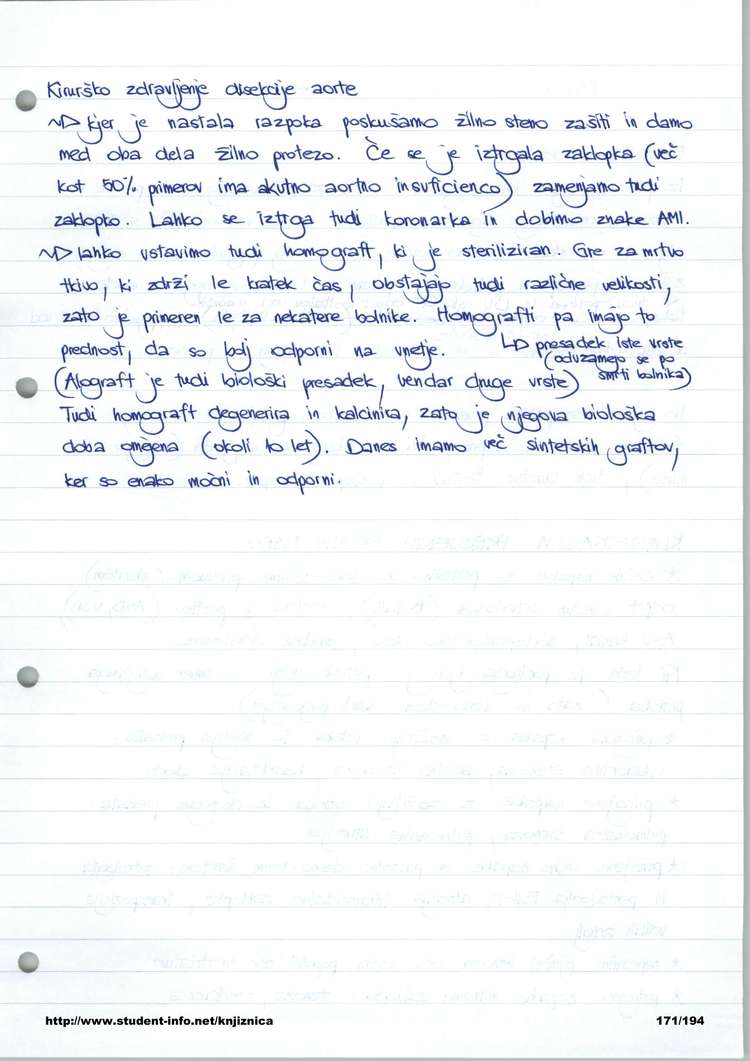 Kirurško zdravljenje disekcije aorte
~▷ kjer je nastala razpoka poskušamo žilno steno zašiti in damo
med oba dela žilno protezo. Če se je iztrgala zaklopka (več
kot 50% primerov ima akutno aortno insuficienco) zamenjamo tudi
zaklopko. Lahko se iztrga tudi koronarka in dobimo znake AMI.
~▷ lahko ustavimo tudi homograft, ki je steriliziran. Gre za mrtvo
tkivo, ki zdrži le kratek čas, obstajajo tudi različne velikosti,
zato je primeren le za nekatere bolnike. Homografti pa imajo to
prednost, da so bolj odporni na vnetje. ↳ presadek iste vrste
(oduzamejo se po
smrti bolnika)
(Alograft je tudi biološki presadek, vendar druge vrste)
Tudi homograft degenerira in kalcinira, zato je njegova biološka
doba omejena (okoli 10 let). Danes imamo več sintetskih graftov,
ker so enako močni in odporni.
http://www.student-info.net/knjiznica
171/194